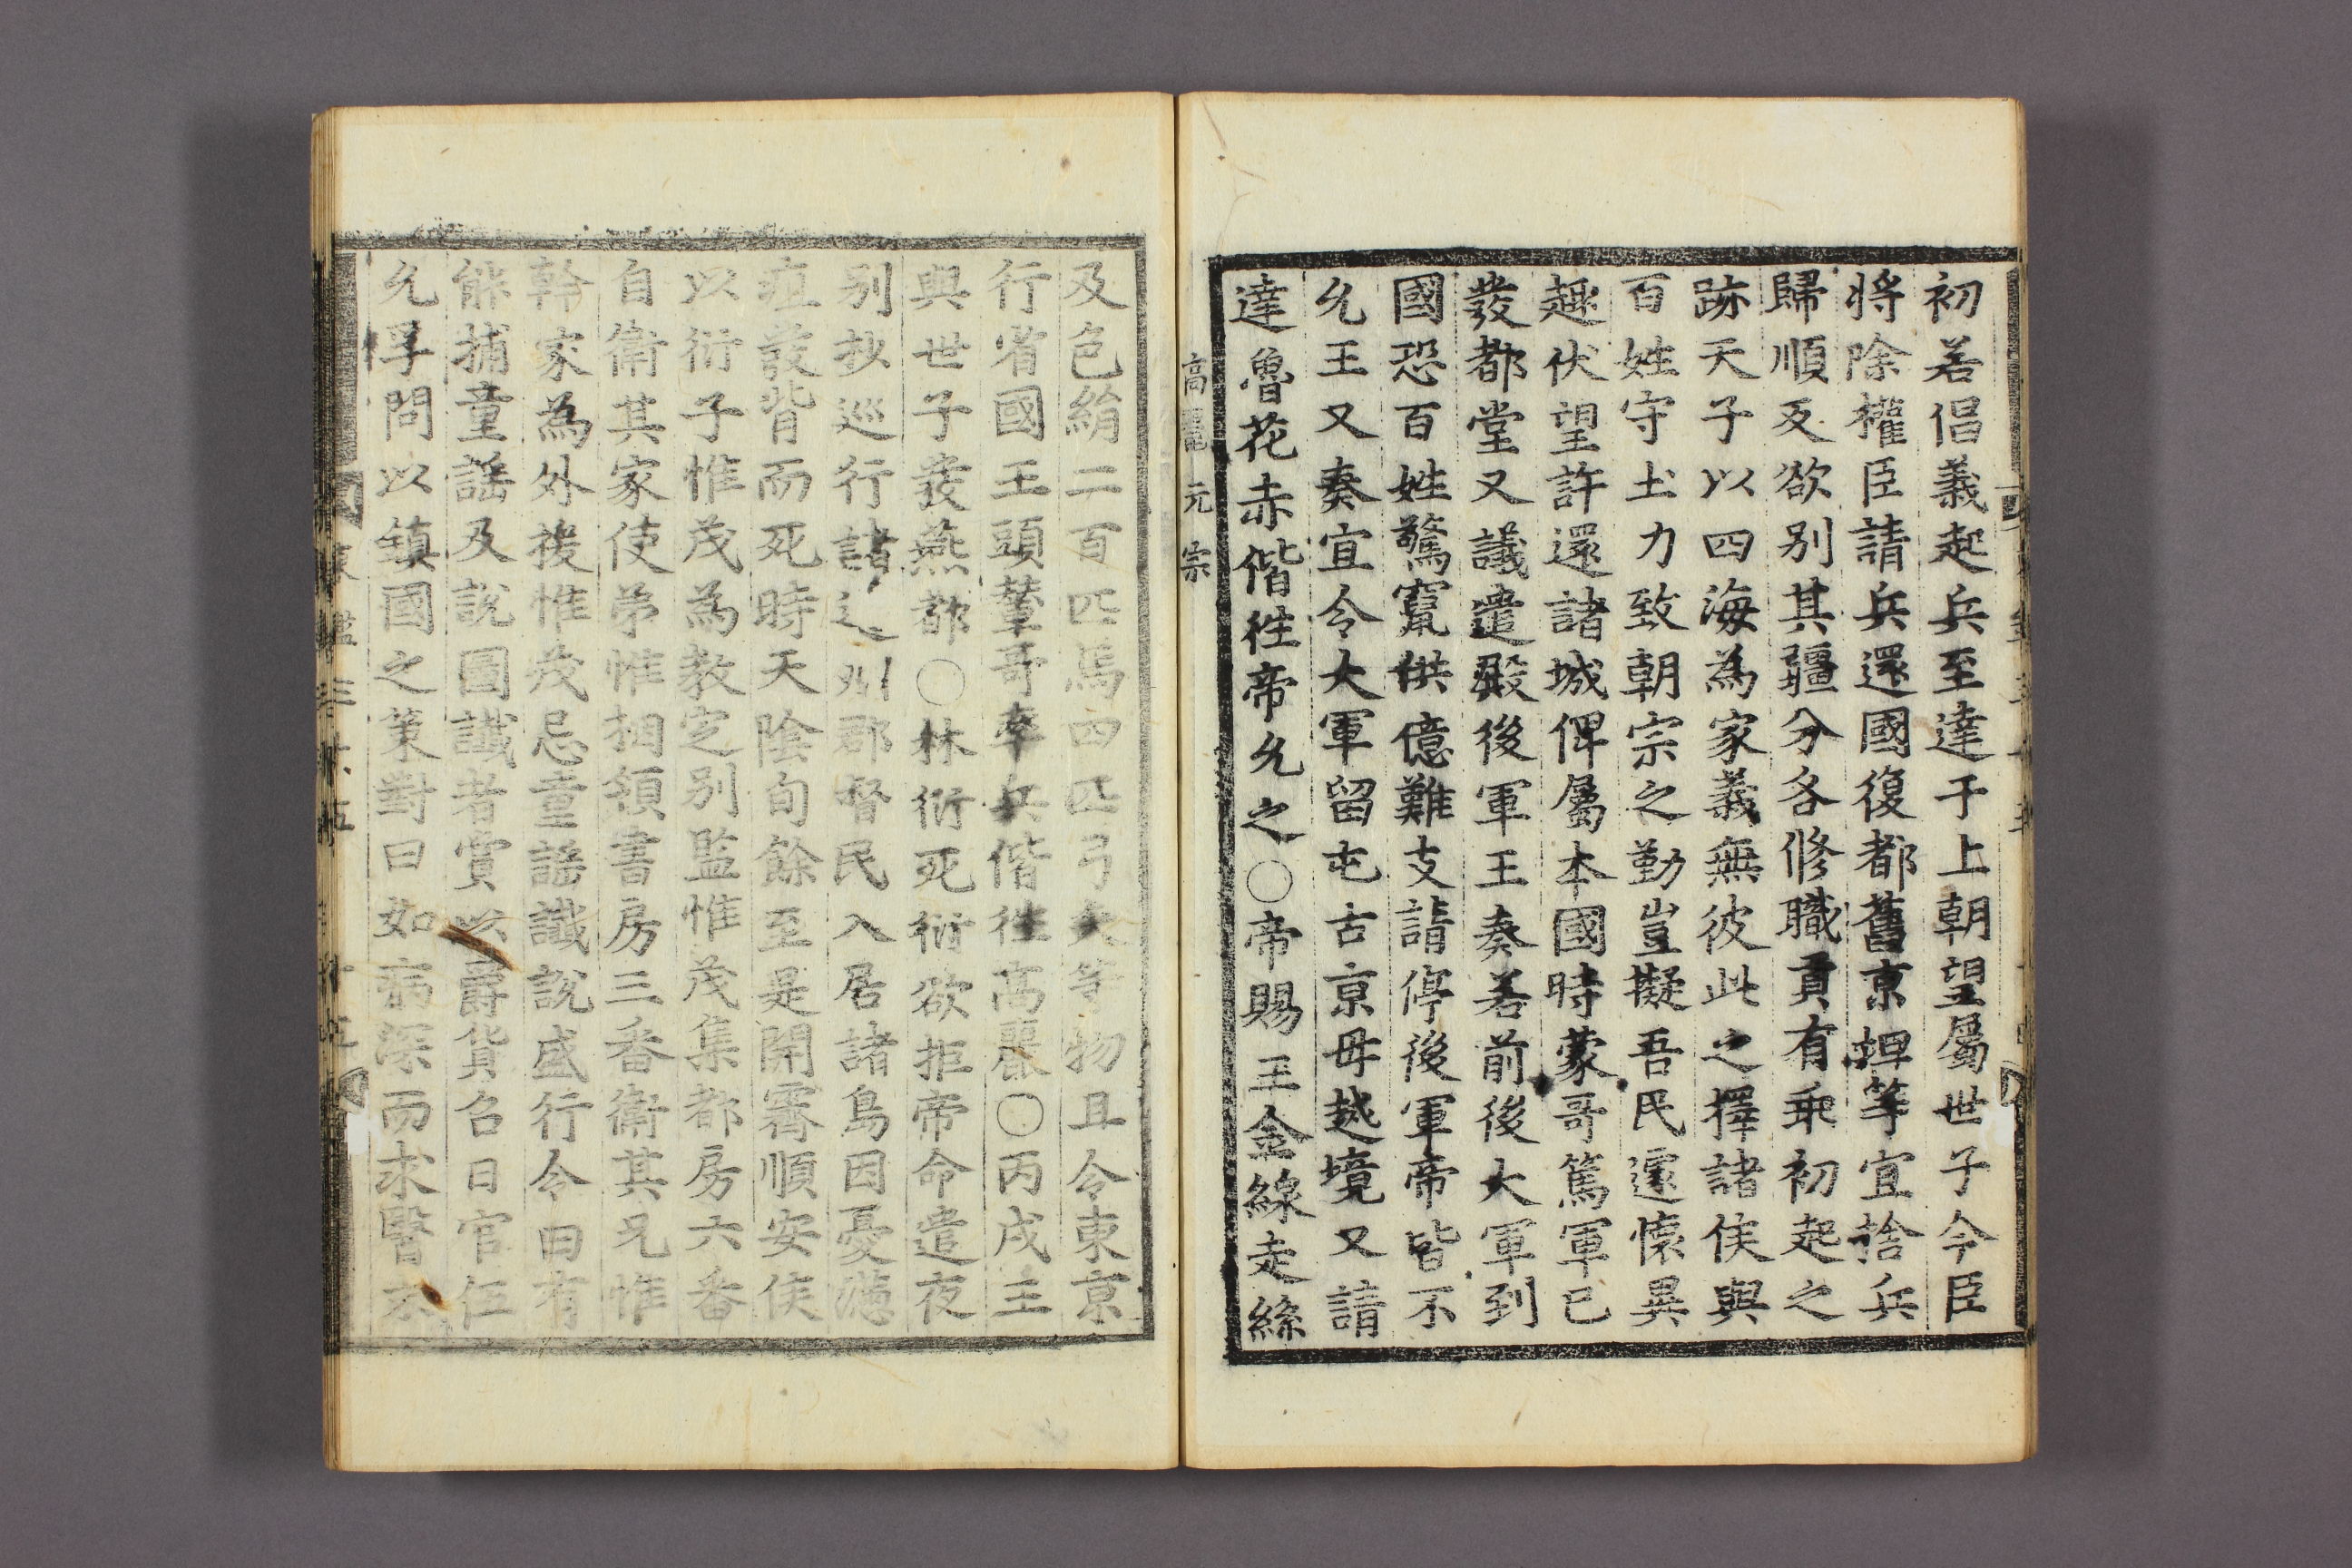 初若侣義起兵至達于上朝望屬世子今臣
將除權臣請兵還國復都舊京坦等宜捨兵
歸順反欲别其疆分各修職貢有乖初起之
跡天子以四海為家義無彼此之擇諸侯與
百姓守土力致朝宗之勤豈擬吾民遽懷異
趣伏望許還諸城俾屬本國時蒙哥篤軍已
發都堂又議遣殿後軍王奏若前後大軍到
國恐百姓驚竄供億難支請停後軍帝皆不
允王又奏宜令大軍留屯古京毋越境又請
達魯花赤偕徃帝允之○帝賜王金線走絲
高麗元宗
及色絹二百匹馬四匹弓矢等物且令東京
行省國王頭輦哥率兵偕徃高麗○丙戌王
與世子發燕都○林衍死衍欲拒帝命遣夜
别抄巡行諸道州郡督民入居諸島因憂懣
疽發背而死時天陰旬餘至是開霽順安侯
以衍子惟茂為教定别監惟茂集都房六番
自衛其家使弟惟梱領書房三番衛其兄惟
幹家為外援惟茂忌童謡讖說盛行令曰有
能捕童謡及說圖讖者賞以爵貨召日官伍
允孚問以鎮國之策對曰如病深而求醫不